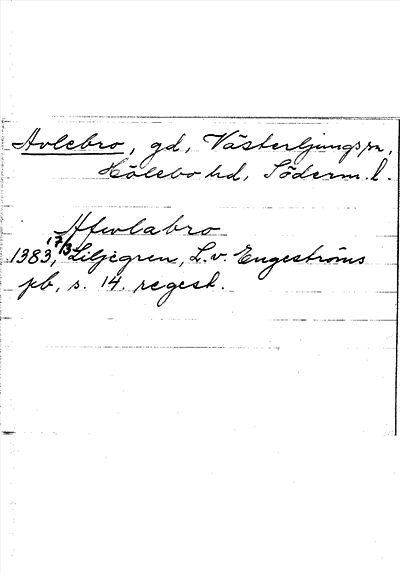 Avlebro, gd, Västerljungs sn,
Hölebo hd, Söderm. l.
Afwlabro
1383, 17/3, Liljegren, L. v. Engeströms
pb, s. 14. regest.